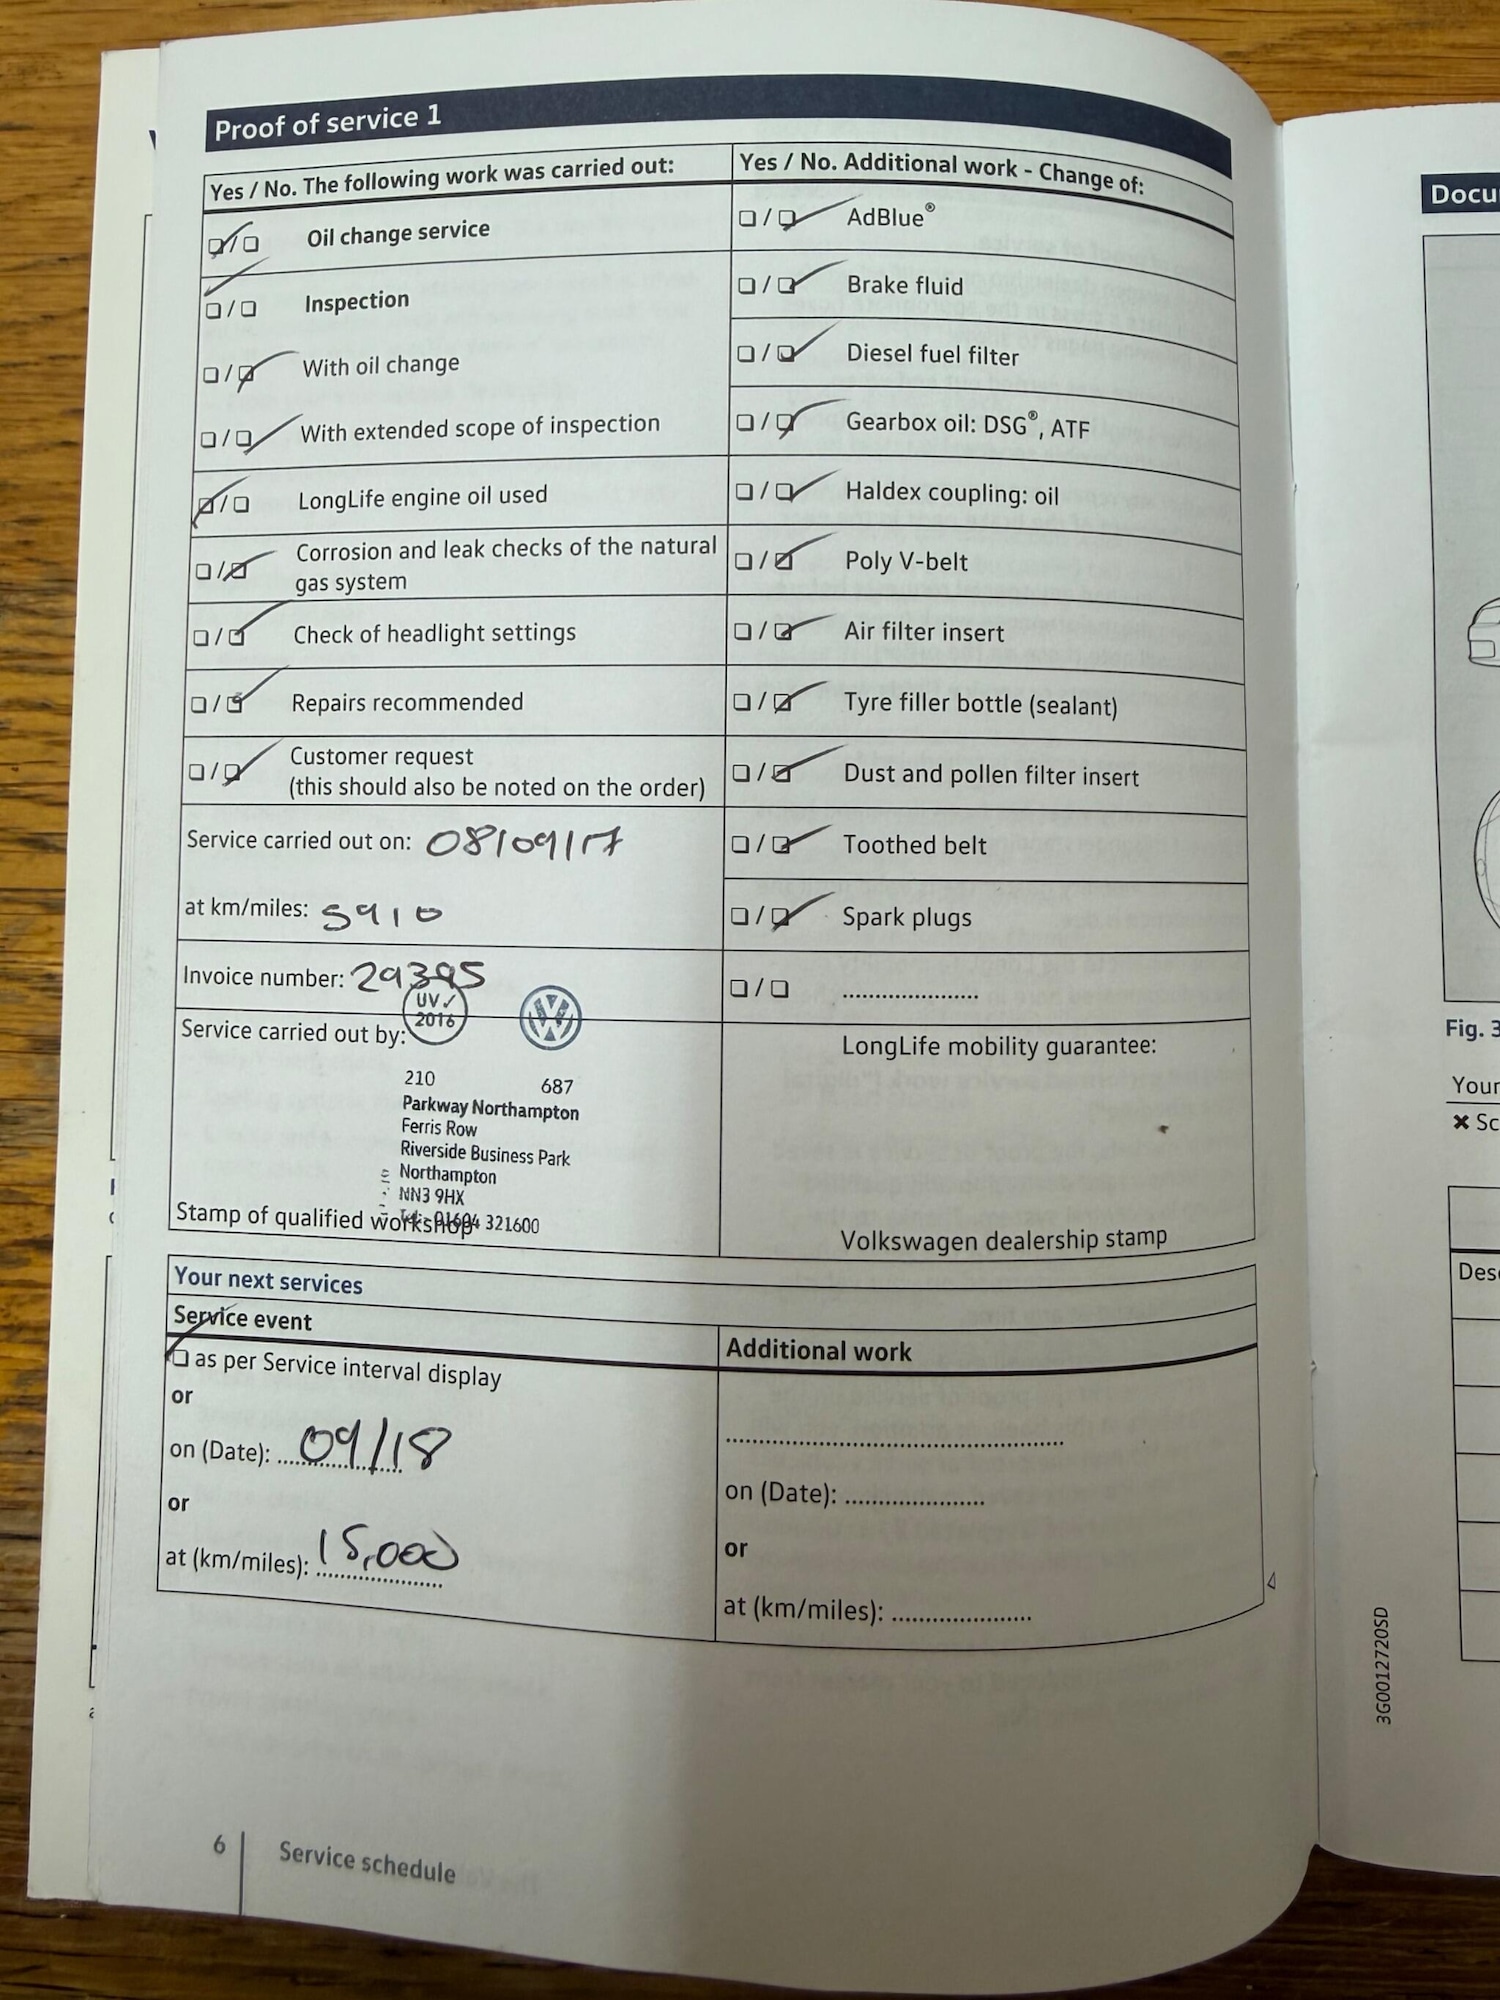 Proof of service 1
Yes / No. The following work was carried out:
☑/☐ Oil change service
☐/☐ Inspection
☐/☑ With oil change
☐/☑ With extended scope of inspection
☑/☐ LongLife engine oil used
☐/☑ Corrosion and leak checks of the natural
gas system
☐/☑ Check of headlight settings
☐/☑ Repairs recommended
☐/☑ Customer request
(this should also be noted on the order)
Service carried out on: 08/09/17
at km/miles: 5910
Invoice number: 29395
UV✓
2016
Service carried out by:
210 687
Parkway Northampton
Ferris Row
Riverside Business Park
Northampton
NN3 9HX
Tel: 01604 321600
Stamp of qualified workshop
Yes / No. Additional work - Change of:
☐/☑ AdBlue®
☐/☑ Brake fluid
☐/☑ Diesel fuel filter
☐/☑ Gearbox oil: DSG®, ATF
☐/☑ Haldex coupling: oil
☐/☑ Poly V-belt
☐/☑ Air filter insert
☐/☑ Tyre filler bottle (sealant)
☐/☑ Dust and pollen filter insert
☐/☑ Toothed belt
☐/☑ Spark plugs
☐/☐ ......................
LongLife mobility guarantee:
Volkswagen dealership stamp
Your next services
Service event
☑ as per Service interval display
or
on (Date): 09/18
or
at (km/miles): 15,000
Additional work
on (Date): ......................
or
at (km/miles): ......................
6 Service schedule
Docu
Fig. 3
Your
✖ Sc
Des
3G0012720SD